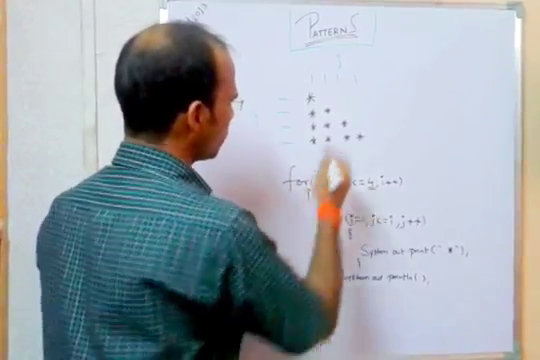 PATTERNS
*
* *
* * *
* * * *
for(i<=4,i++)
(j=1,j<=i,j++)
{
System.out.print("*");
System.out.println();